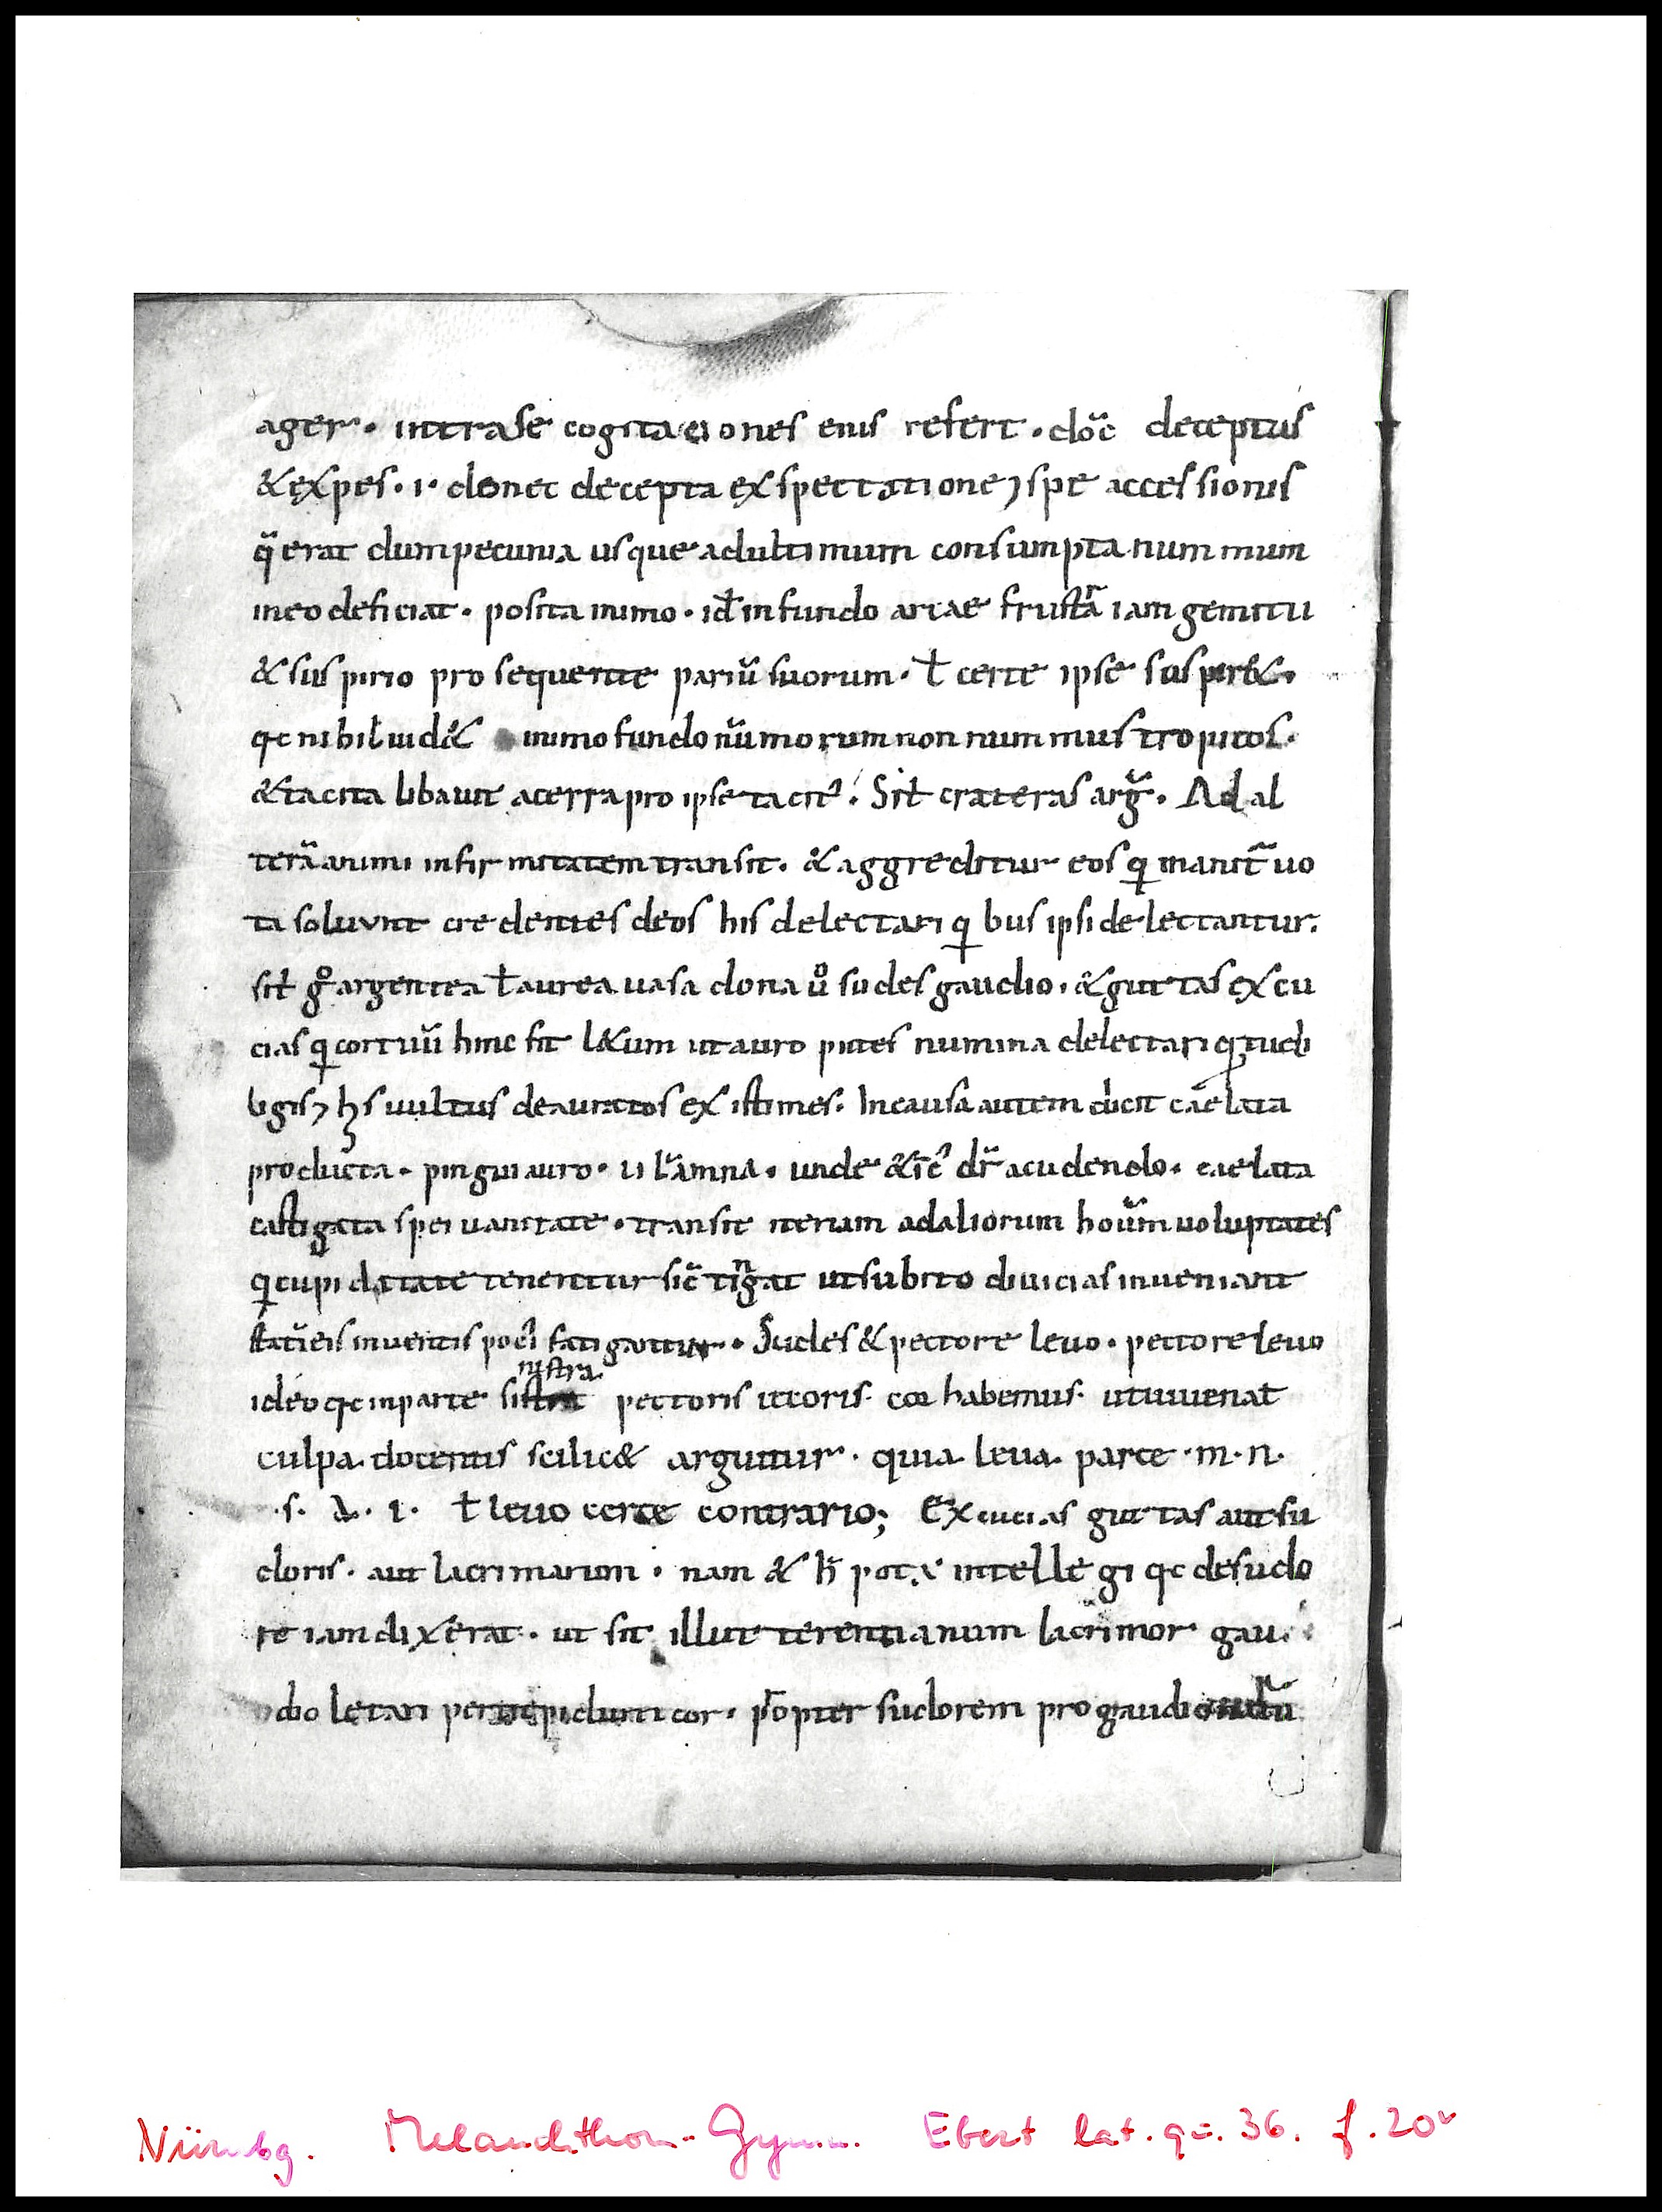 ager · intra se cogitaciones eius refert · do᷃c deceptus
& exspes · i · donec decepta exspectatione ⁊ spe accessionis
q̃ erat dum pecunia usque ad ultimum consumpta nummum
in eo deficiat · posita in imo · id ÷ in fundo arcae frustrã iam gemitu
& suspirio prosequente pariũ suorum · ł certe ipse suspir&·
qc nihil uid& in imo fundo nũmorum non nummus tropicos·
& tacita libauit acerra pro ipse tacit᾽· Sił crateras arg̃ · Ad al
terã animi infirmitatem transit · & aggreditur eos qi manit̃ uo
ta soluunt credentes deos his delectari qibus ipsi delectantur.
sił gͦ argentea ł aurea uasa dona uͦ sudes gaudio · & guttas excu
cias qi cor tuũ hinc fit l&um ut auro putes numina delectari q tu di
ligis ⁊ hs uultus deauratos existimes · In causa autem dicit cãelata
producta · pingui auro · u lãmna · unde & ic᾽ dr̃ a cudendo · caelata
castigata spei uanitate · transit iterum ad aliorum hoũm uoluptates
qi cupiditate tenentur sic᷃ tingat ut subito diuicias inueniant
statĩ eis inuentis poc᾽i fatigantur · Sudes & pectore leuo · pectore leuo
ideo qc in parte sinistra pectoris ictoris · cor habemus · ut iuuenat
culpa docentis scilic& arguitur · quia leua parte · m · n ·
· s · A · i · ł leuo certe contrario; Excucias guttas aut su
doris · aut lacrimarum · nam & h̃ pot᾽ intellegi qc de sudo
re iam dixerat · ut sit illut terentianum lacrimor gau
dio letari pertrepidum cor · p̃opter sudorem pro gaudio
Nürnbg. Melanchthon-Gymn. Ebert lat. q=. 36. f. 20v